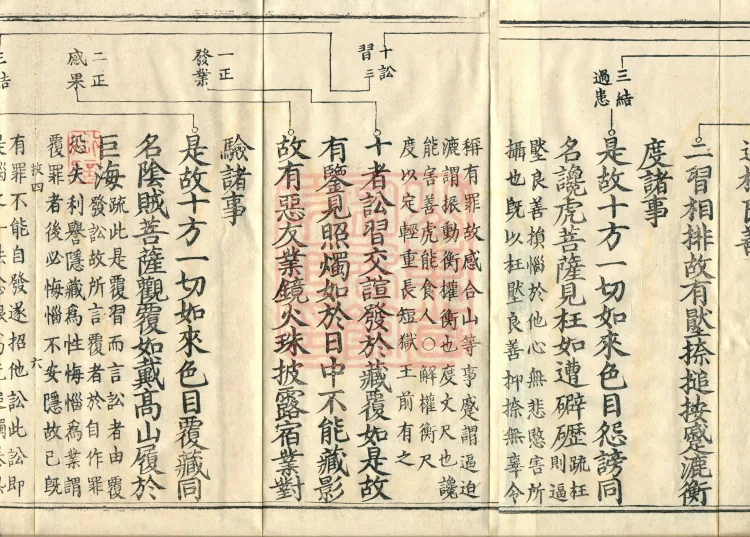 三結
過患
二習相排故有壓捺搥按蹙漉衡
度諸事
是故十方一切如來色目怨謗同
名讒虎菩薩見枉如遭礔礰疏枉
則逼
壓良善損惱於他心無悲愍害所
攝也既以枉壓良善抑捺無辜令
十訟
習三
一正
發業
二正
感果
三結
稱有罪故感合山等事蹙謂逼迫
漉謂振動衡權衡也度丈尺也讒
能害善虎能食人〇解權衡尺
度以定輕重長短獄王前有之
十者訟習交諠發於藏覆如是故
有鑒見照燭如於日中不能藏影
故有惡友業鏡火珠披露宿業對
驗諸事
是故十方一切如來色目覆藏同
名陰賊菩薩觀覆如戴高山履於
巨海疏此是覆習而言訟者由覆
發訟故所言覆者於自作罪
恐失利譽隱藏為性悔惱為業謂
覆罪者後必悔惱不安隱故已既
救四 六
有罪不能自發遂招他訟此訟即